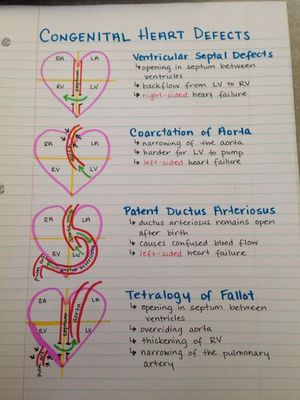 CONGENITAL HEART DEFECTS
Ventricular Septal Defects
↳ opening in septum between
ventricles
↳ backflow from LV to RV
↳ right-sided heart failure
RA
LA
septum
RV
LV
Coarctation of Aorta
↳ narrowing of the aorta
↳ harder for LV to pump
↳ left-sided heart failure
RA
LA
RV
LV
Patent Ductus Arteriosus
↳ ductus arteriosus remains open
after birth
↳ causes confused blood flow
↳ left-sided heart failure
RA
LA
RV
LV
Tetralogy of Fallot
↳ opening in septum between
ventricles
↳ overriding aorta
↳ thickening of RV
↳ narrowing of the pulmonary
artery
RA
LA
septum
aorta
RV
LV